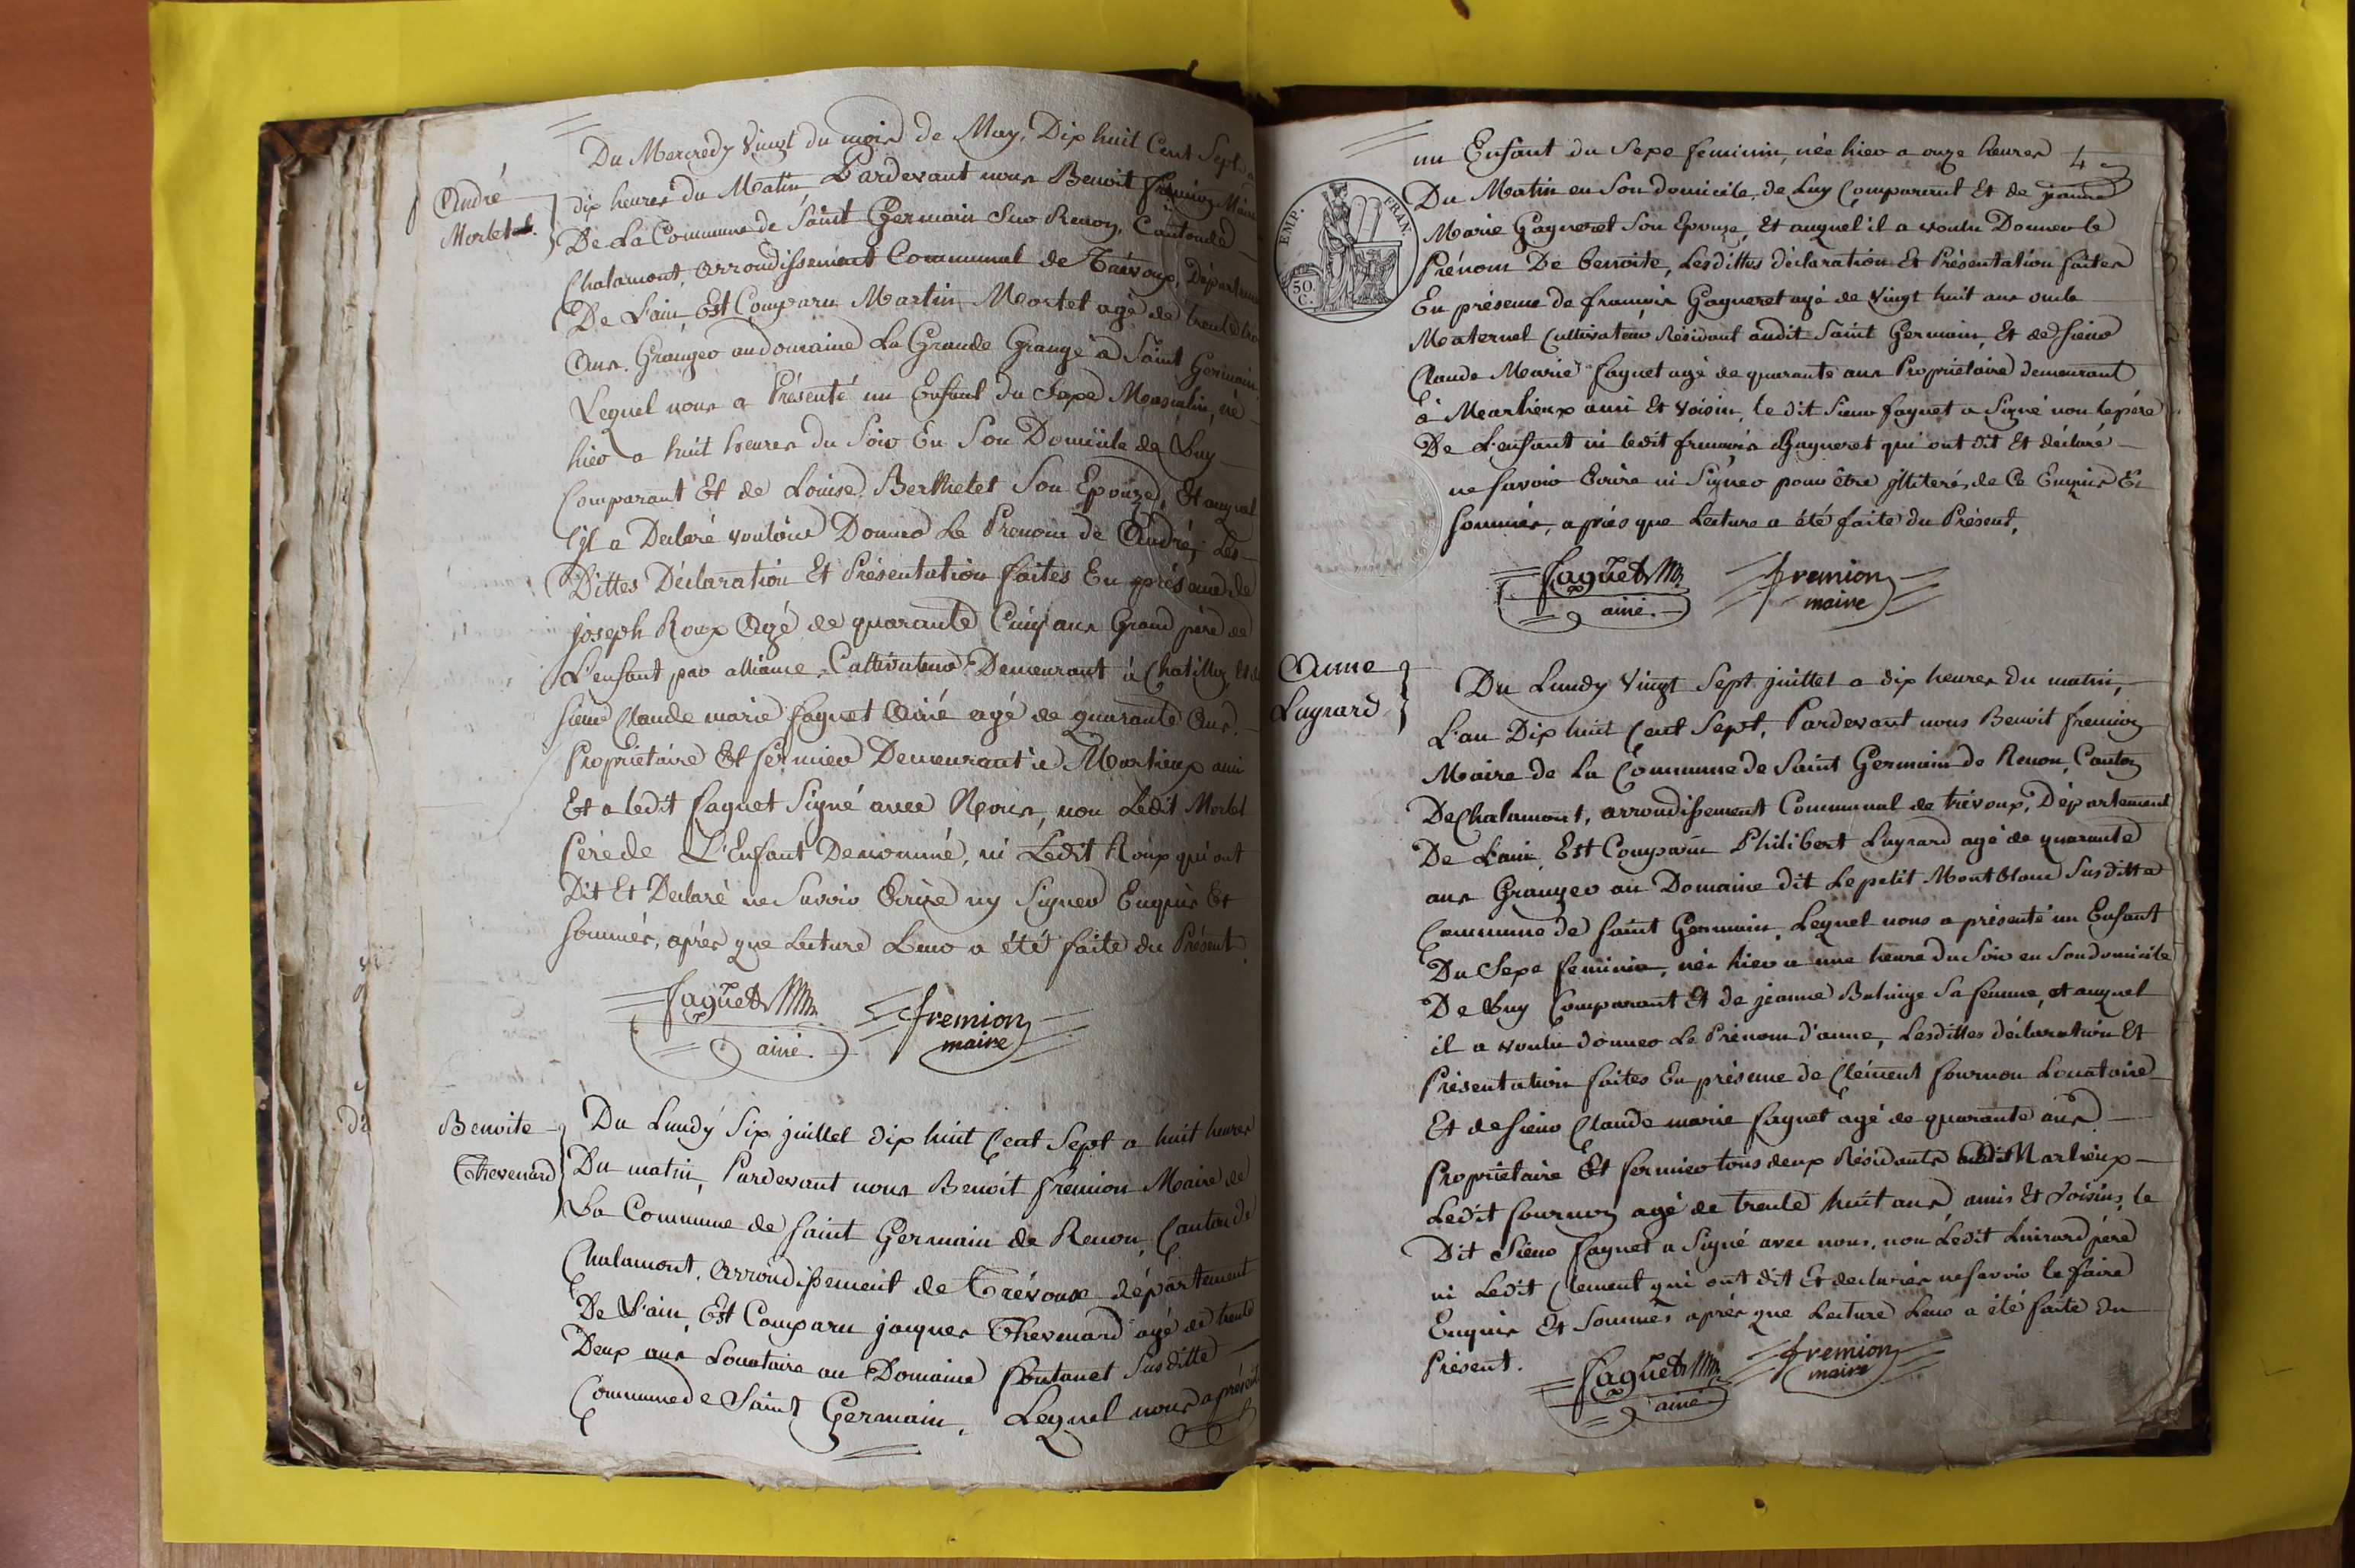 André
Mortet
Du Mercredy Vingt du mois de May, Dix huit Cent Sept a
dix heures du Matin, Pardevant nous Benoit fremion Maire
De La Commune de Saint Germain Sur Renon, Canton de
Chalamont, arrondissement Communal de Trévoux, Départeme
De L'ain, Est Comparu Martin Mortet agé de trente
Ans. Granger au domaine La Grande Grange a Saint Germain
Lequel nous a Présenté un Enfant du Sexe Masculin, né
hier a huit heures du Soir En Son Domicile de Luy
Comparant Et de Louise Berthelet Son Epouze, Et auquel
Il a Declaré vouloir Donner Le Prenom de André, Les
Dittes Déclaration Et Présentation faites En présence de
joseph Roux Agé de quarante Cinq ans Grand père de
L'enfant par alliance, Cultivateur Demeurant à Chatillon, Et de
sieur Claude marie faguet Ainé agé de quarante Ans,
Propriétaire Et fermier Demeurant a Marlieux ami
Et a ledit faguet Signé avec Nous, non Ledit Mortet
Père de L'Enfant Denommé, ni Ledit Roux qui ont
Dit Et Declaré ne Savoir Ecrire ny Signer Enquis Et
Sommés, après que Lecture Leur a été faite du Présent.
faguet
ainé.
fremion
maire
Benoite
Thevenard
Du Lundy Six juillet dix huit Cent Sept a huit heures
Du matin, Pardevant nous Benoit fremion Maire de
La Commune de Saint Germain de Renon, Canton de
Chalamont, arrondissement de Trévoux département
De L'ain, Est Comparu jacques Thevenard agé de trente
Deux ans Locataire au Domaine Fontanet Susditte
Commune de Saint Germain, Lequel nous a présenté
4
EMP. FRAN.
50.
C.
un Enfant du Sexe feminin, née hier a onze heures
Du Matin en Son domicile, de Luy Comparant Et de jeanne
Marie Gagneret Son Epouze, Et auquel il a voulu Donner le
Prénom De benoite, Lesdittes déclaration Et Présentation faites
En présence de francois Gagneret agé de Vingt huit ans oncle
Maternel Cultivateur Résidant audit Saint Germain, Et de Sieur
Claude Marie faguet agé de quarante ans Propriétaire demeurant
à Marlieux ami Et voisin, le dit Sieur faguet a Signé non le père
De L'enfant ni ledit francois Gagneret qui ont dit Et déclaré
ne savoir Ecrire ni Signer pour être illiterés de Ce Enquis Et
Sommés, après que Lecture a été faite du Présent.
faguet
ainé.
fremion
maire
Anne
Luynard
Du Lundy Vingt Sept juillet a dix heures du matin,
L'an Dix huit Cent Sept, Pardevant nous Benoit fremion
Maire de La Commune de Saint Germain de Renon, Canton
De Chalamont, arrondissement Communal de trévoux, Département
De L'ain, Est Comparu Philibert Luynard agé de quarante
ans Granger au Domaine dit Le petit Montblanc Susditte
Commune de Saint Germain, Lequel nous a présenté un Enfant
Du Sexe feminin, née hier a une heure du Soir en Son domicile
De Luy Comparant Et de jeanne Sa femme, et auquel
il a voulu donner Le Prénom d'anne, Lesdittes déclaration Et
Présentation faites En présence de Clément fournon Locataire
Et de Sieur Claude marie faguet agé de quarante ans
Propriétaire Et fermier tous deux Résidants Marlieux
Ledit fournon agé de trente huit ans, amis Et Voisins, le
Dit Sieur faguet a Signé avec nous, non Ledit père
ni Ledit Clement qui ont dit Et declarés ne Savoir le faire
Enquis Et Sommés après que Lecture Leur a été faite du
Présent.
faguet
ainé
fremion
maire